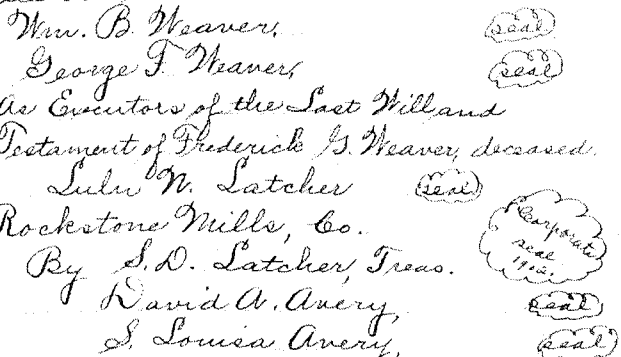 Wm. B. Weaver, (seal)
George F. Weaver, (seal)
As Executors of the Last Will and
Testament of Frederick G. Weaver, deceased.
Lulu N. Latcher (seal)
Rockstone Mills, Co.
(Corporate
seal
1902.)
By S.D. Latcher, Treas.
David A. Avery, (seal)
S. Louisa Avery, (seal)